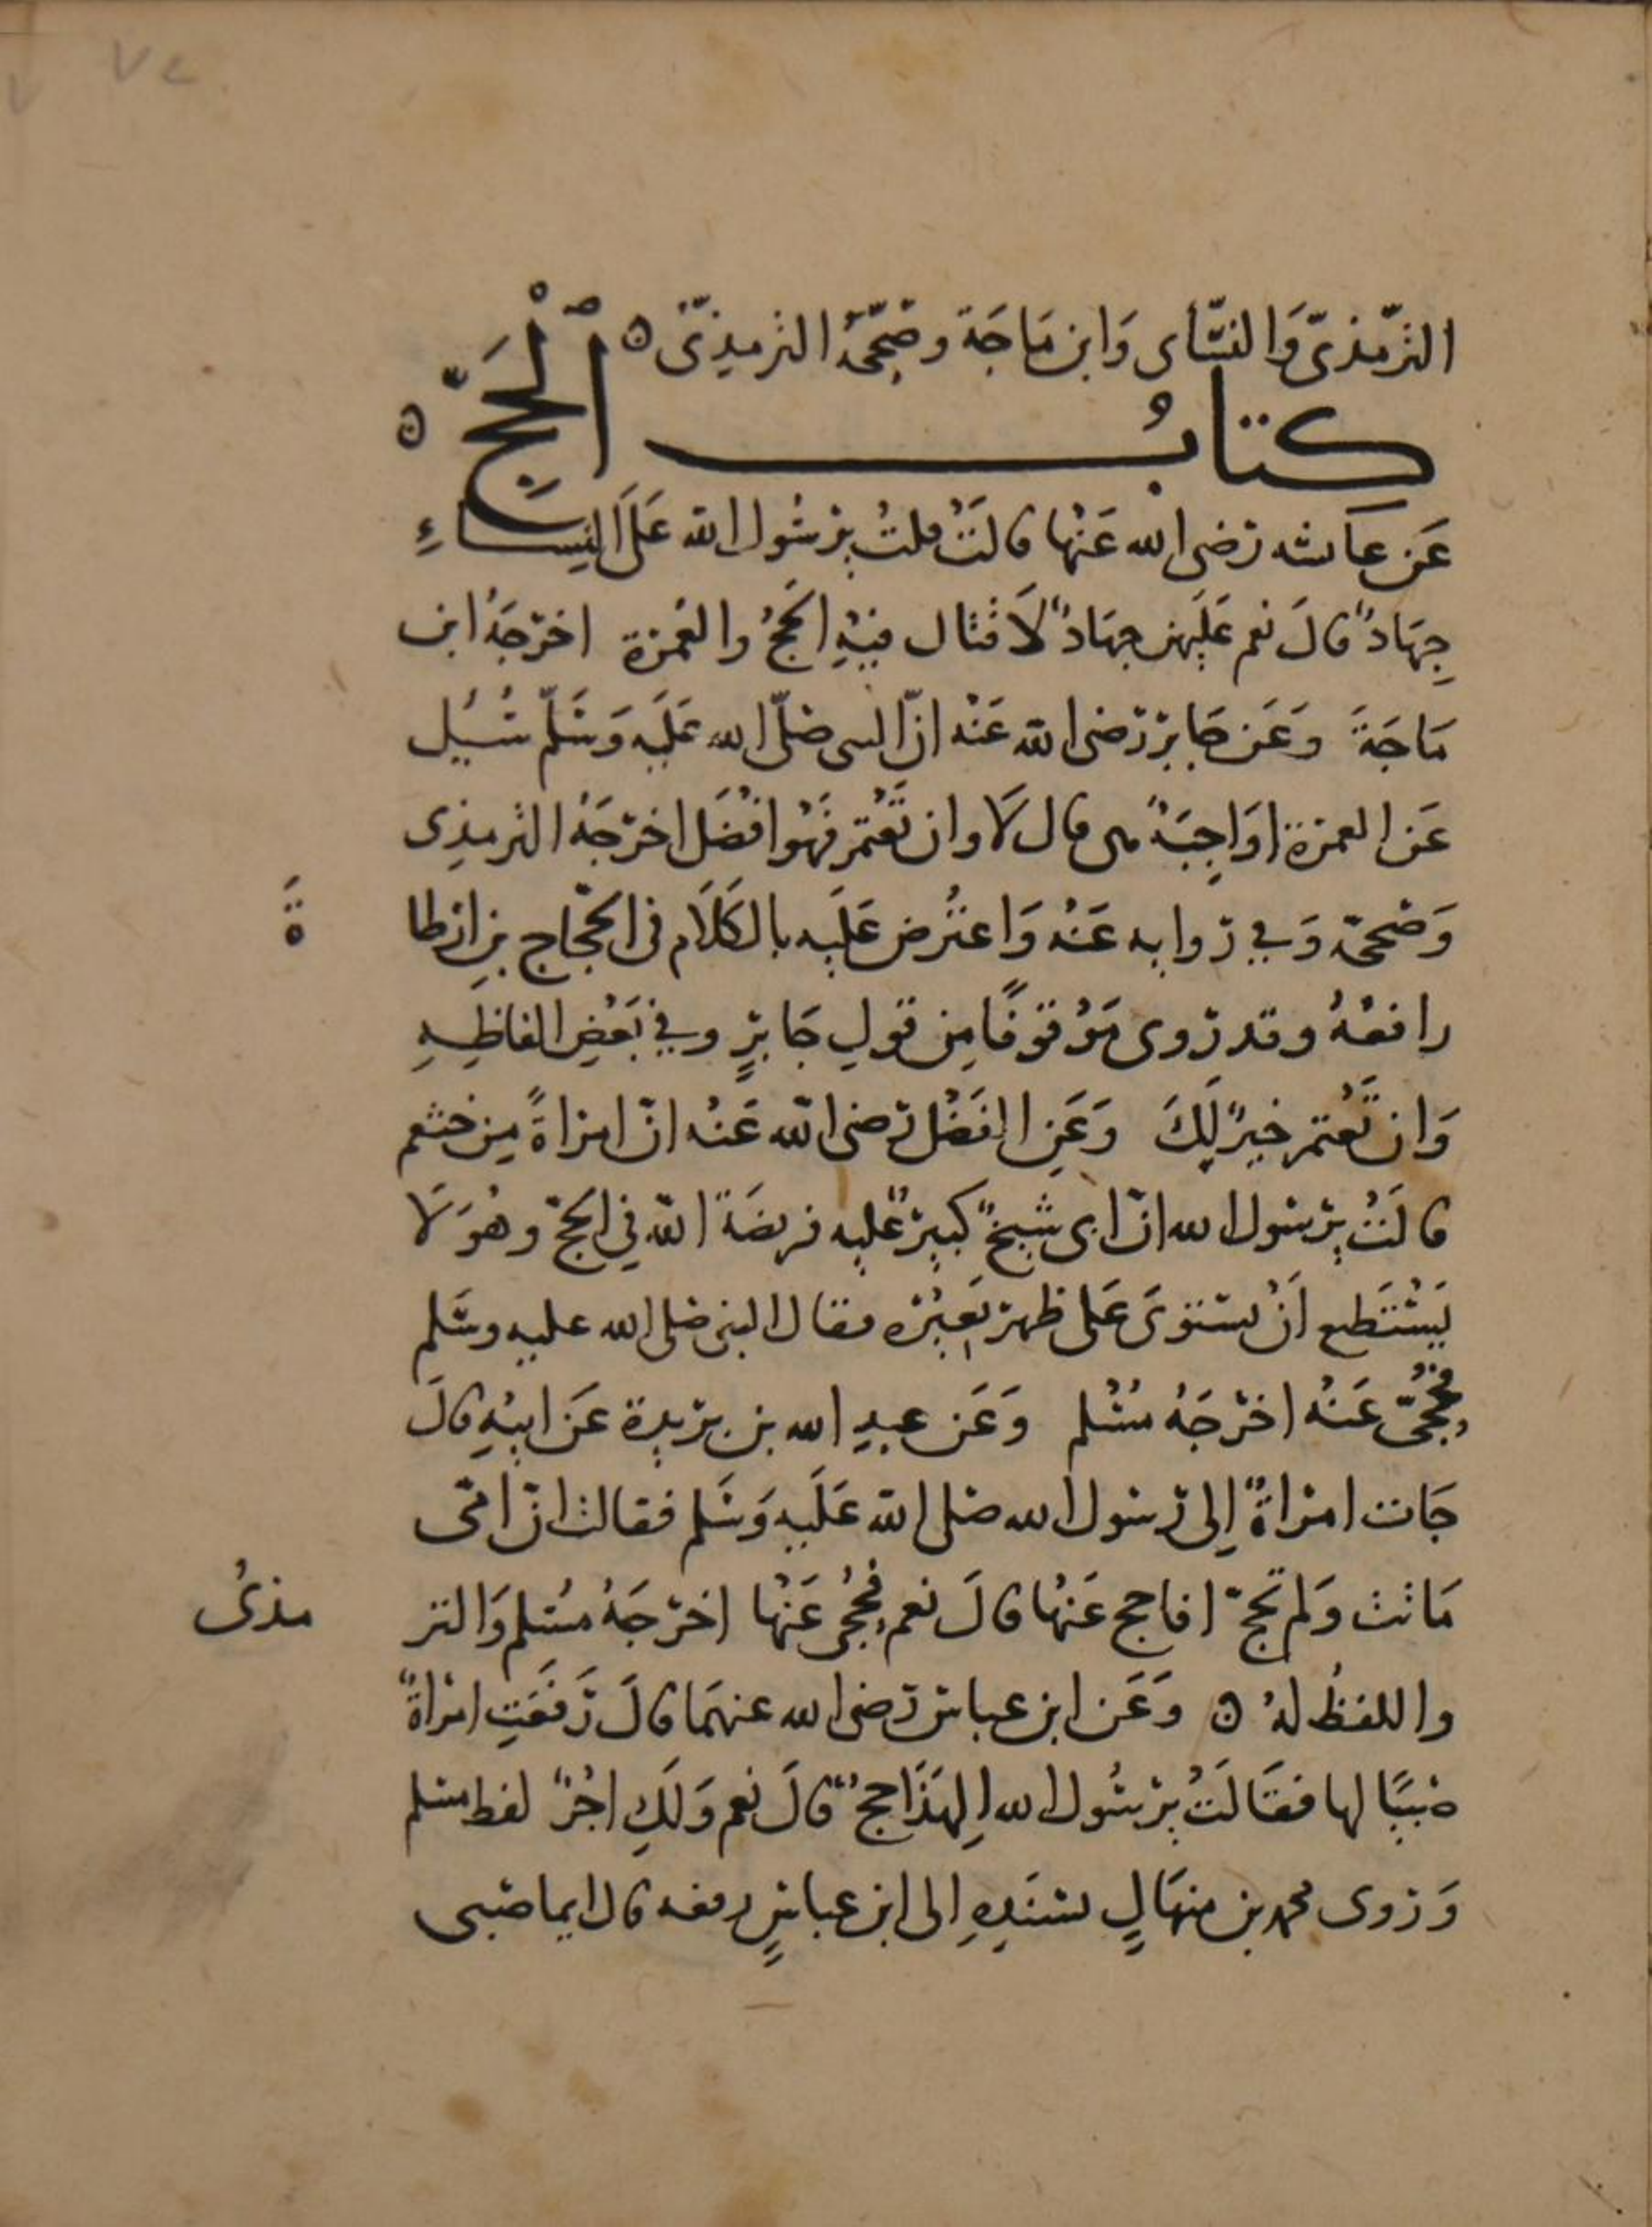 ٧٢
الترمذيّ وَالنسَّاى وَابن مَاجَة وصَحّحَهُ الترمِذيّ ه
كِتابُ ٱلْحَجِّ ه
عَن عاىشه رَضى الله عَنْها قالَتْ قلتُ يرسُول الله عَلَى النِسَاءِ
جِهَادٌ قالَ نعم عَلَيهن جِهَادٌ لاَ قتال فيْهِ الحَجُّ والعُمْرة اخرَجَهُ ابن
مَاجَةَ وَعَن جَابر رَضى الله عَنْه انّ النبى صَلّى الله عَلَيه وَسَلّم سُئِل
عَن العمرة اوَاجِبَةٌ هى قال لاَ وان تَعْتمر فَهُوَ افْضَل اخرَجَهُ الترمِذِى
وَصَححّه وَفي روايه عَنْهُ وَاعتُرض عَلَيه بالكَلاَم فى الحجّاج بنِ ارطا
ةَ
رافعْهُ وقد رُوى مَوْقوفًا مِن قولِ جَابرٍ وفي بَعْضِ الفاظِهِ
وَان تَعْتمر خيرٌ لَكَ وَعَنِ الفَضْل رَضى الله عَنْه انّ امراةً مِن خثعم
قالَتْ يرسُول الله انّ ابى شيخٌ كبيرٌ عليه فريضَة الله في الحَجّ وهُوَ لاَ
يَسْتَطيع اَنْ يستوىَ عَلى ظهر بَعِيْره فقال النبى صَلى الله عليه وسَلم
فحُجّى عَنْهُ اخرَجَهُ مُسْلم وَعَن عبدِ الله بن بريدة عَن ابيْهِ قالَ
جَات امراةٌ اِلى رَسُول الله صَلى الله عَلَيهِ وَسَلم فقالت انّ امّى
مَاتت وَلم تحجّ افاحج عَنْها قالَ نعم حُجّى عَنْها اخرَجَهُ مُسْلم وَالتر
مذىُّ
واللفظُ لهُ ه وَعَن ابن عباسٍ رَضى الله عنهمَا قالَ رَفعَتِ امراةٌ
صَبيًّا لها فقَالَتْ يرسُول الله اِلهَذَا حجٌّ قالَ نعم وَلَكِ اجْرٌ لفظ مسلم
وَرَوى محمد بن منهَالٍ بسَنَدِهِ اِلى ابن عباسٍ رفعه قال ايما صَبى